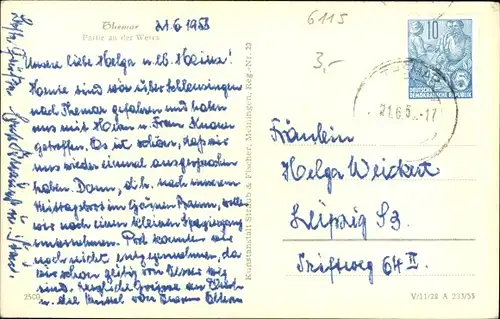 Themar
Partie an der Werra
21.6.1958
6115
3,-
Unsere liebe Helga u. lb. Heinz!
Heute sind wir über Schleusingen
nach Themar gefahren und haben
uns mit Herrn u. Frau Knauer
getroffen. Es ist schön, daß wir
uns wieder einmal aussprechen
haben. Dann, d.h. nach unserem
Mittagbrot im Grünen Baum, wollen
wir noch einen kleinen Spaziergang
unternehmen. Post konnten wir
noch nicht entgegennehmen, da
wir schon zeitig von weg
sind. Herzliche Grüsse an Euch
u. die Mussel von Euren Eltern
Kunstanstalt Straub & Fischer, Meiningen, Reg.-Nr. 23
10
DEUTSCHE
DEMOKRATISCHE REPUBLIK
21.6.5 -17
Fräulein
Helga Weickert
Leipzig S3
Triftweg 64 II
2500
V/11/28 A 223/55